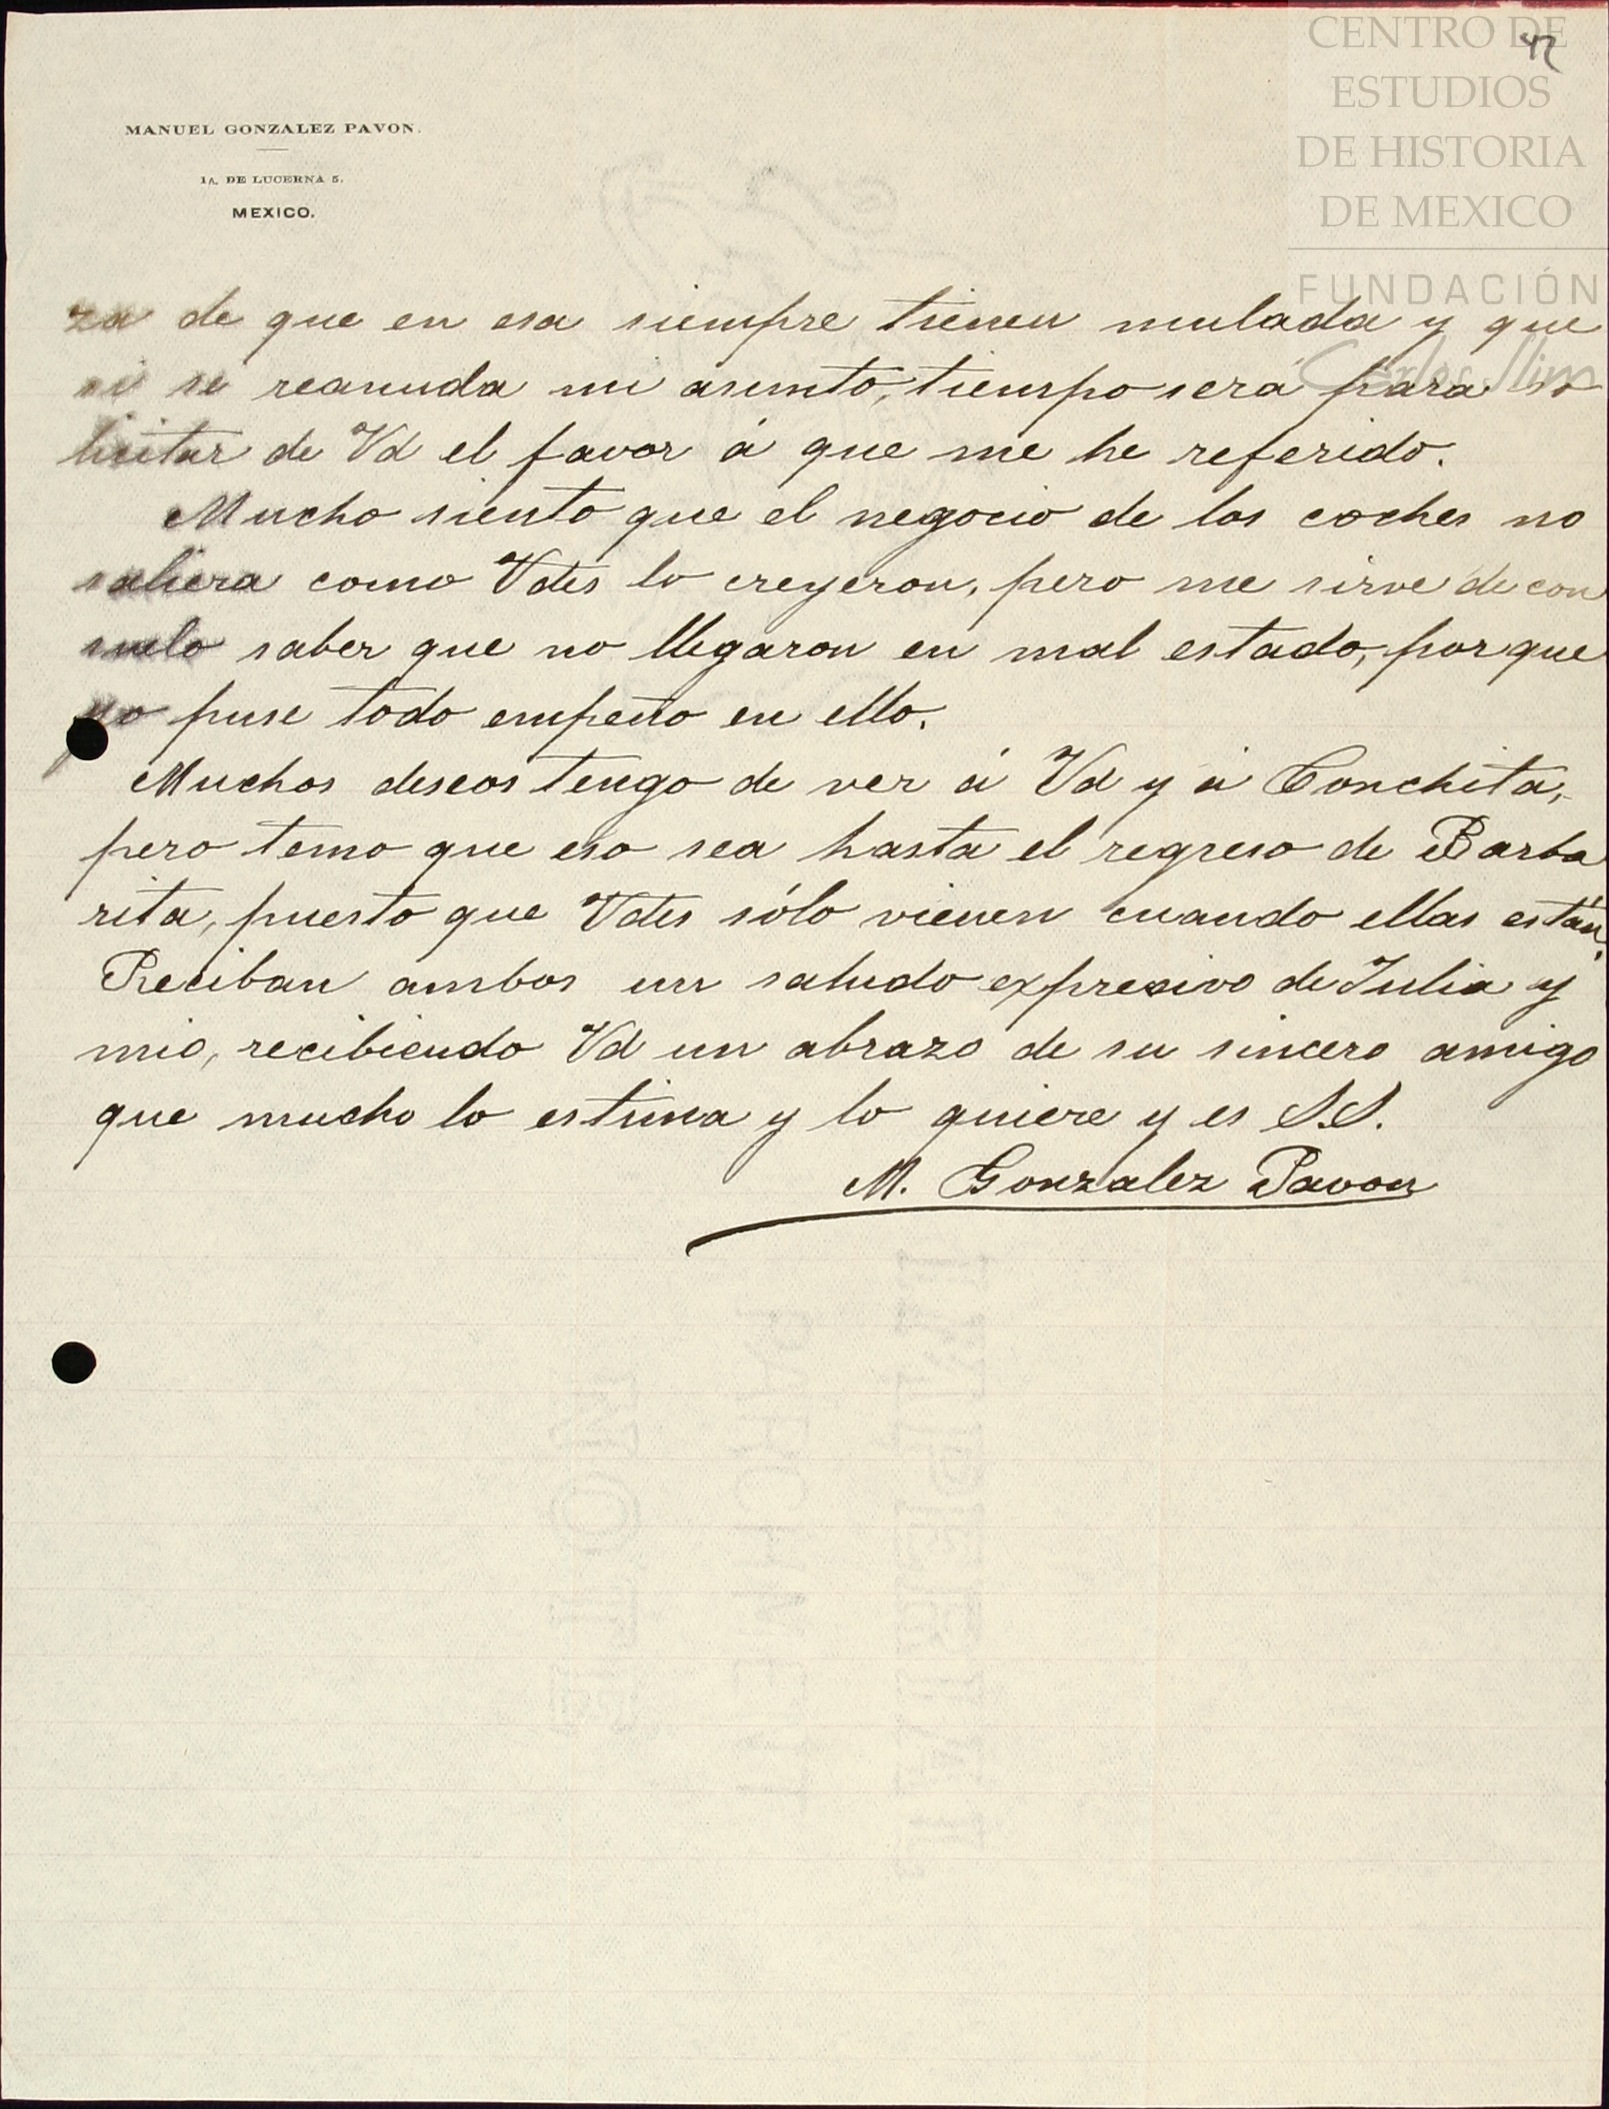 42
CENTRO DE
ESTUDIOS
DE HISTORIA
DE MEXICO
FUNDACIÓN
Carlos Slim
MANUEL GONZALEZ PAVON.
1A. DE LUCERNA 5.
MEXICO.
za de que en esa siempre tienen mulada y que
si se reanuda mi asunto, tiempo será para so
licitar de Vd el favor á que me he referido.
Mucho siento que el negocio de los coches no
saliera como Vdes lo creyeron, pero me sirve de con
suelo saber que no llegaron en mal estado, porque
yo puse todo empeño en ello.
Muchos deseos tengo de ver á Vd y á Conchita,
pero temo que eso sea hasta el regreso de Barba
rita, puesto que Vdes sólo vienen cuando ellas están.
Reciban ambos un saludo expresivo de Julia y
mio, recibiendo Vd un abrazo de su sincero amigo
que mucho lo estima y lo quiere y es S.S.
M. Gonzalez Pavon